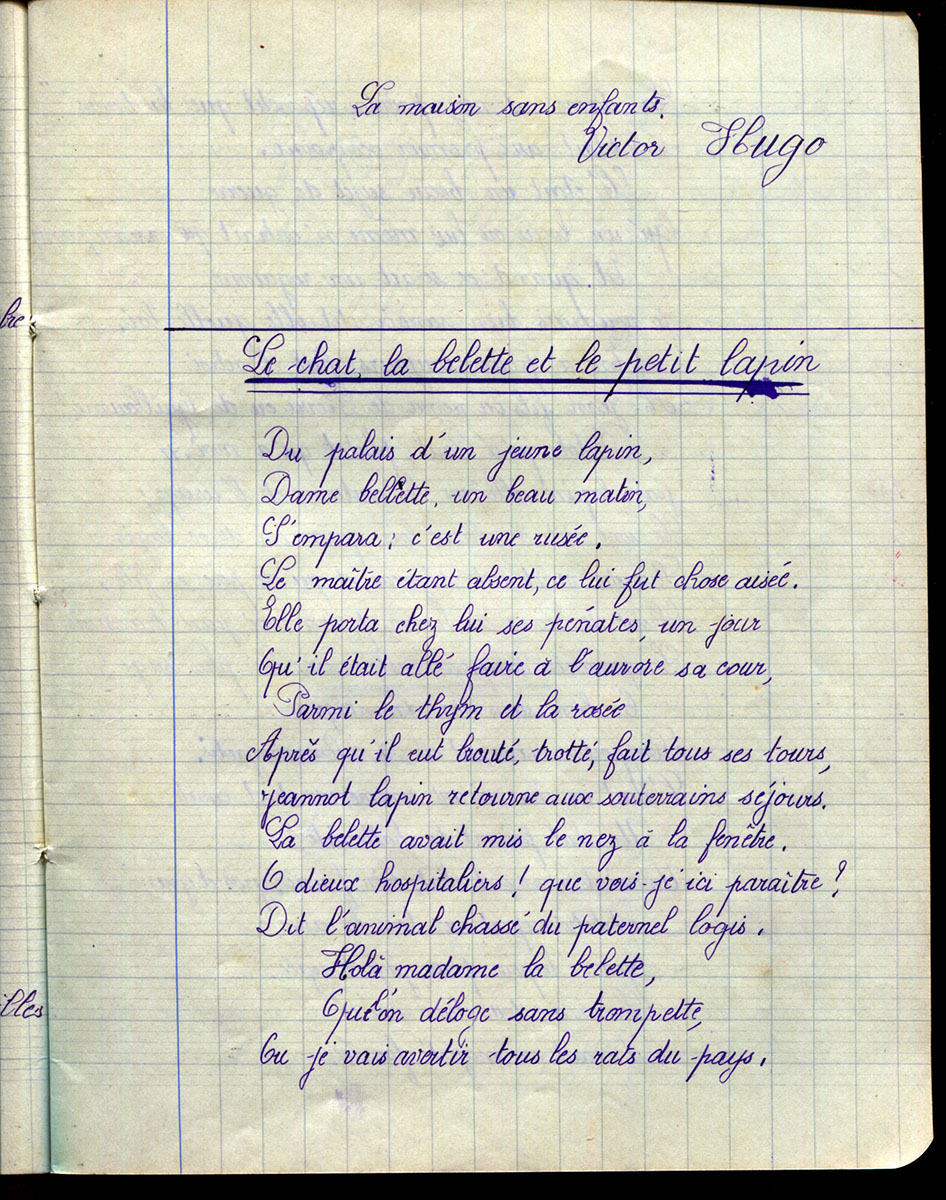 La maison sans enfants.
Victor Hugo
bre
Le chat, la belette et le petit lapin
Du palais d'un jeune lapin,
Dame bellette, un beau matin,
S'empara ; c'est une rusée.
Le maître étant absent, ce lui fut chose aisée.
Elle porta chez lui ses pénates, un jour
Qu'il était allé faire à l'aurore sa cour,
Parmi le thym et la rosée
Après qu'il eut brouté, trotté, fait tous ses tours,
Jeannot lapin retourne aux souterrains séjours.
La belette avait mis le nez à la fenêtre.
O dieux hospitaliers ! que vois-je ici paraître ?
Dit l'animal chassé du paternel logis.
Holà madame la belette,
illes
Que l'on déloge sans trompette,
Ou je vais avertir tous les rats du pays.